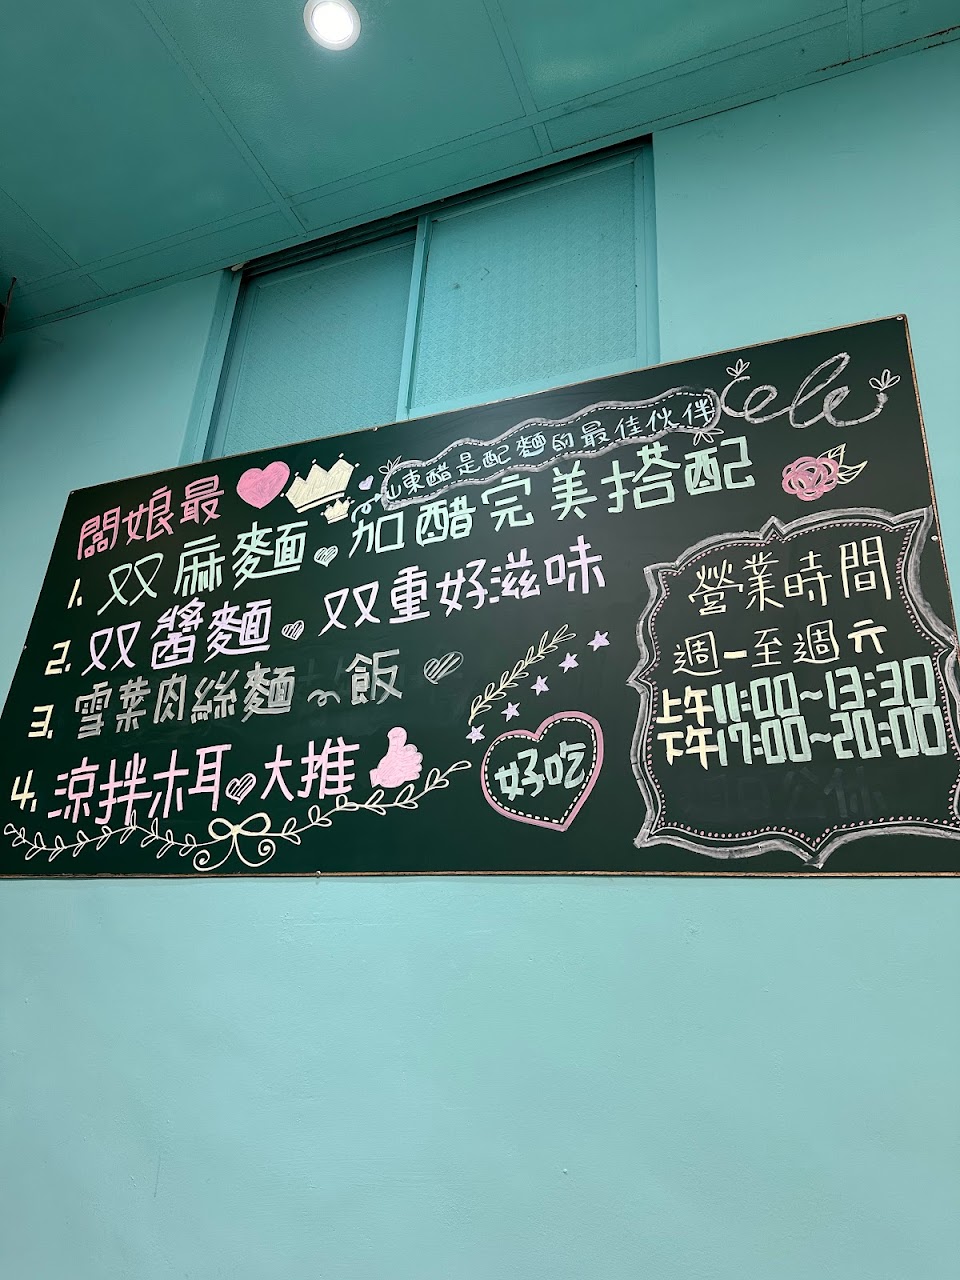 山東醋是配麵的最佳伙伴
闆娘最
1. 双麻麵 加醋完美搭配
2. 双醬麵 双重好滋味
3. 雪菜肉絲麵~飯
4. 涼拌木耳 大推
好吃
營業時間
週一至週六
上午11:00~13:30
下午17:00~20:00